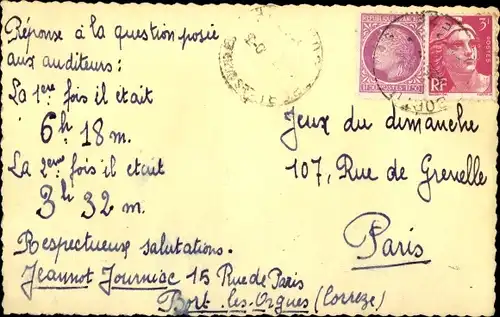 Réponse à la question posée
aux auditeurs :
La 1ère fois il était
6h 18 m.
La 2ème fois il était
3h 32 m.
Respectueux salutations.
Jeannot Journiac 15 Rue de Paris
Bort-les-Orgues (Corrèze)
Jeux du dimanche
107, Rue de Grenelle
Paris
3F
POSTES
RF